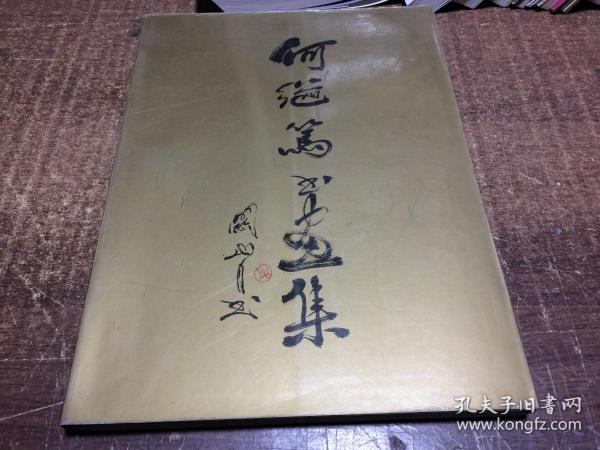 何继笃书画集
關山月书
孔夫子旧书网
www.kongfz.com